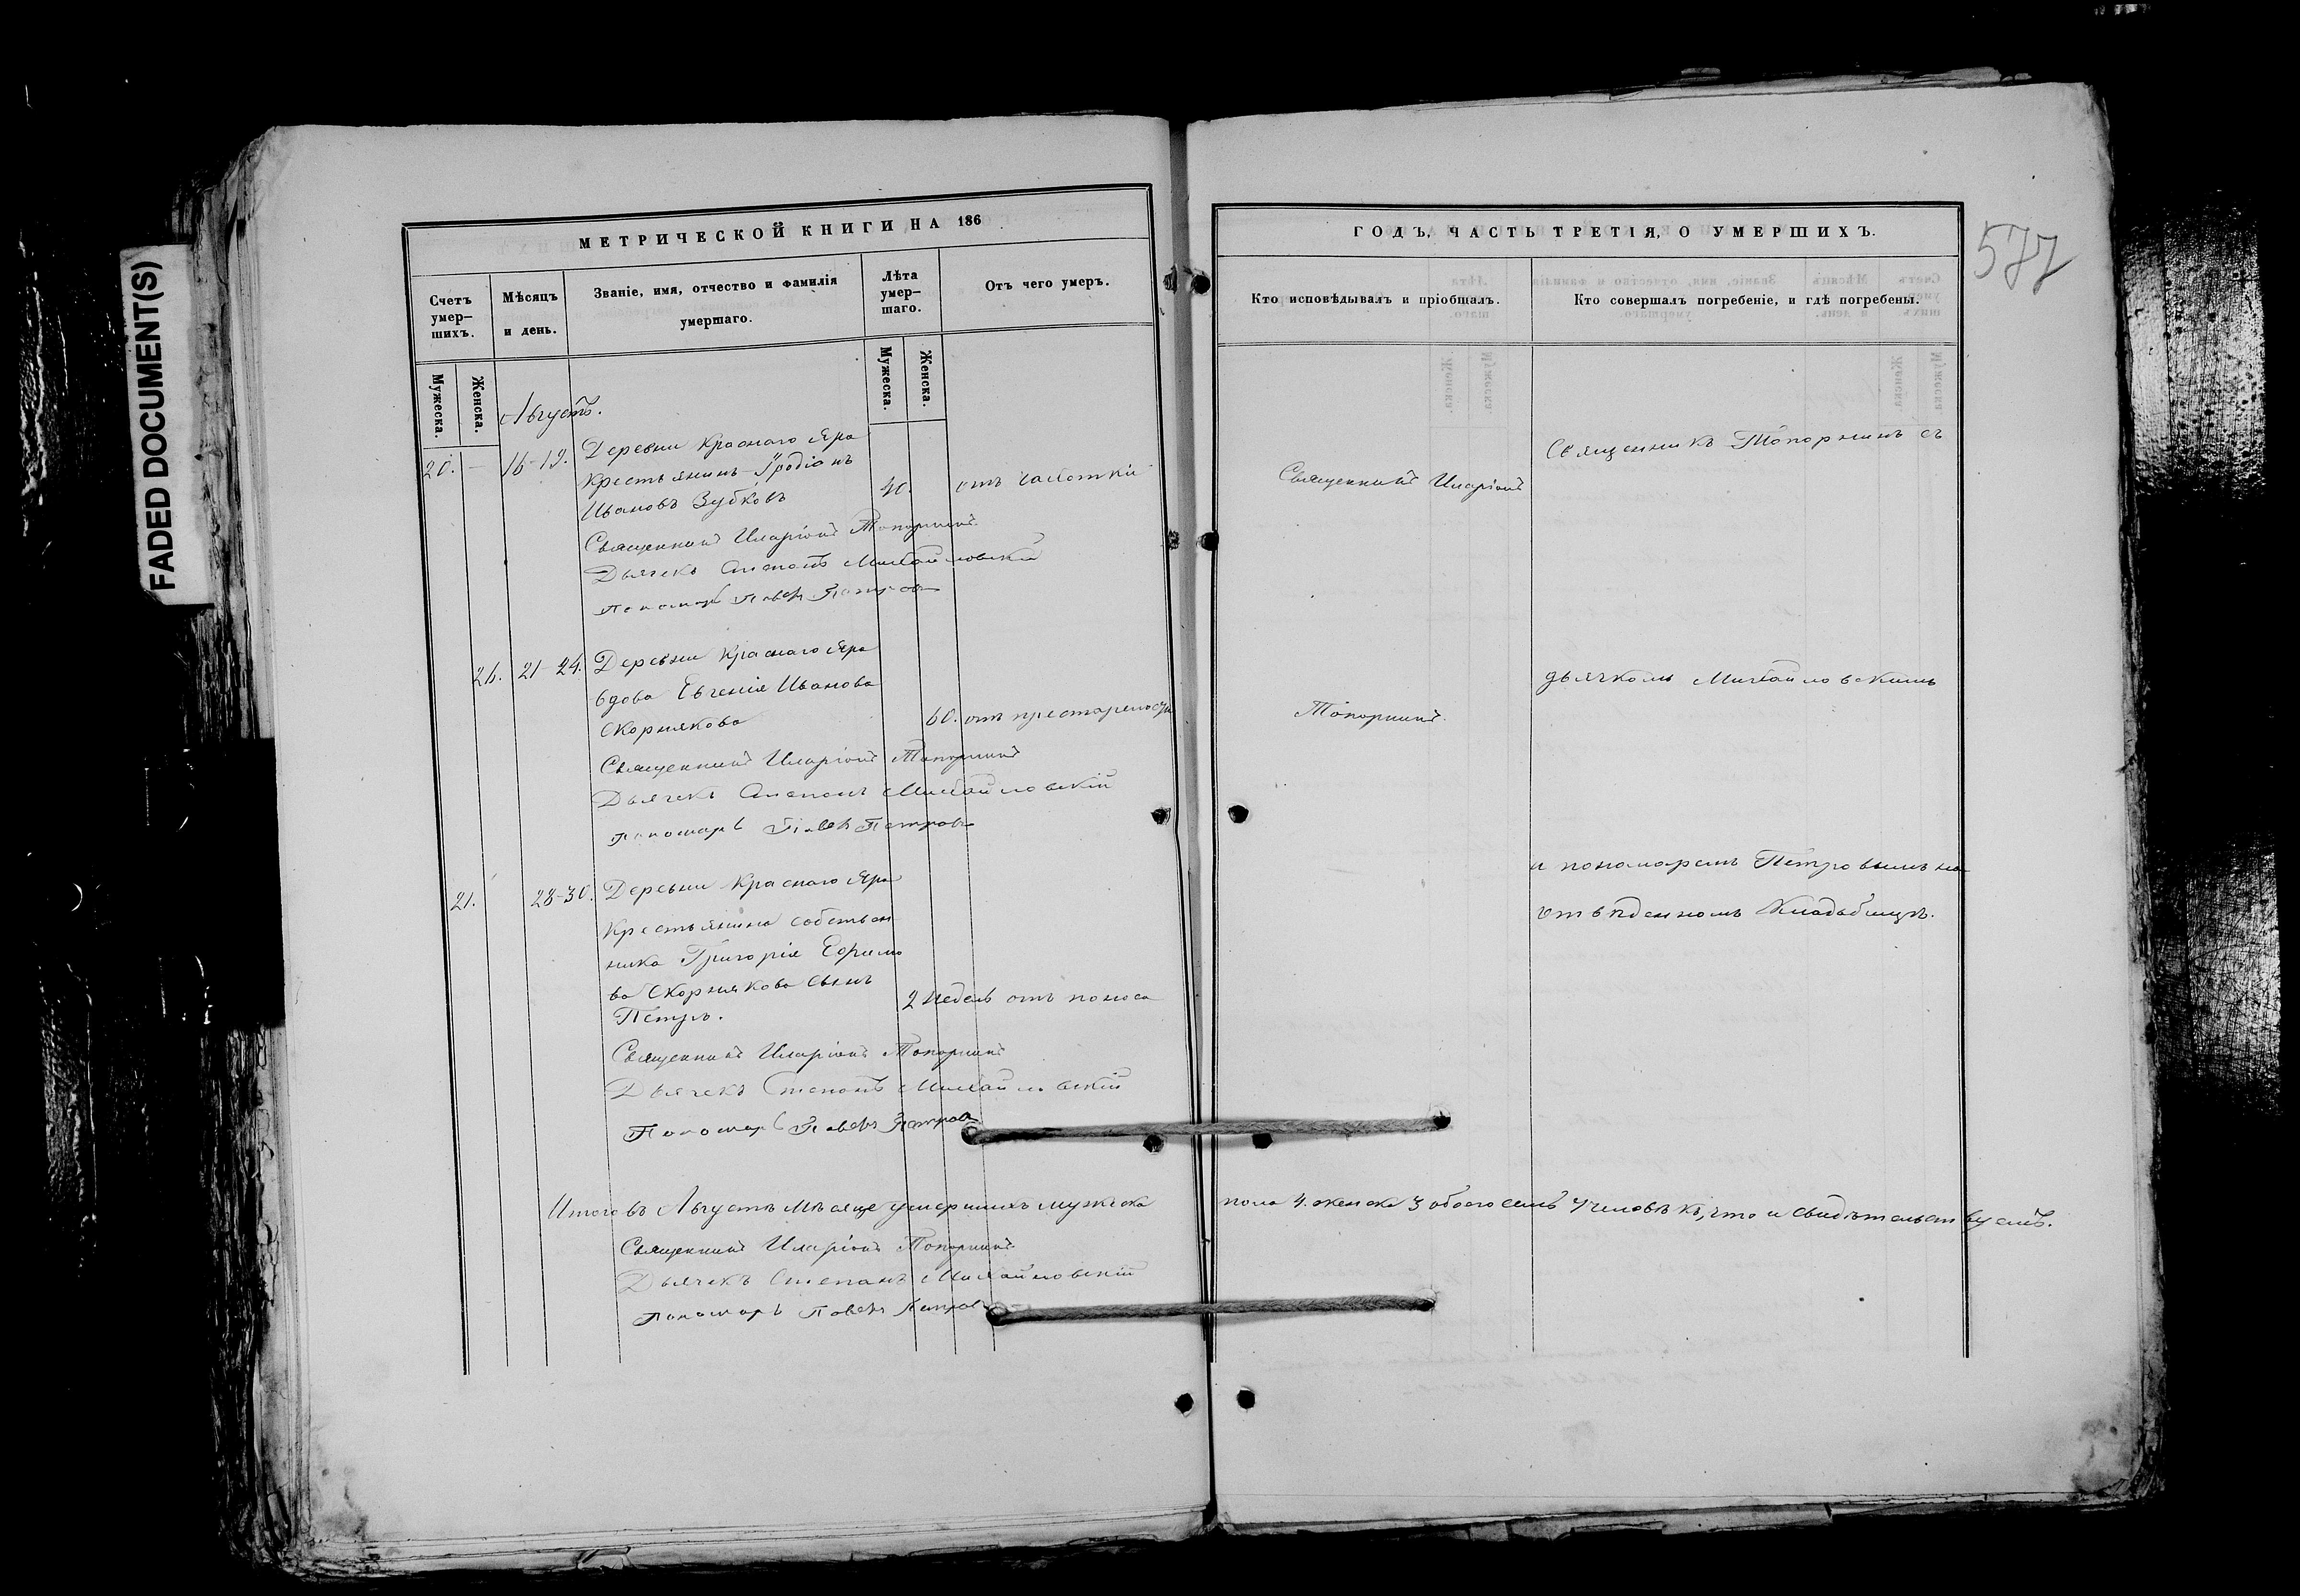 FADED DOCUMENT(S)
МЕТРИЧЕСКОЙ КНИГИ НА 186
Счетъ умер-шихъ.
Мѣсяцъ и день.
Званіе, имя, отчество и фамилія умершаго.
Лѣта умер-шаго.
Отъ чего умеръ.
Мужеска.
Женска.
Мужеска.
Женска.
Августъ.
20. — 16-19. Деревни Краснаго Яра
Крестьянинъ Иродіонъ
Ивановъ Зубковъ 40. отъ чахотки
Священникъ Иларіонъ Топорнинъ
Дьячекъ Степанъ Михайловскій
Пономарь Павелъ Петровъ
21-24. Деревни Краснаго Яра
вдова Евгенія Иванова
Скорнякова 60. отъ престарелости
Священникъ Иларіонъ Топорнинъ
Дьячекъ Степанъ Михайловскій
пономарь Павелъ Петровъ
21. 28-30. Деревни Краснаго Яра
Крестьянина собствен
ника Григорія Ефимо
ва Скорнякова сынъ
Петръ. 2 недель отъ поноса
Священникъ Иларіонъ Топорнинъ
Дьячекъ Степанъ Михайловскій
Пономарь Павелъ Петровъ
Итого въ Августѣ мѣсяце умершихъ мужеска
Священникъ Иларіонъ Топорнинъ
Дьячекъ Степанъ Михайловскій
Пономарь Павелъ Петровъ
577
ГОДЪ, ЧАСТЬ ТРЕТІЯ, О УМЕРШИХЪ.
Кто исповѣдывалъ и пріобщалъ.
Кто совершалъ погребеніе, и гдѣ погребены.
Священникъ Топорнинъ съ
Священникъ Иларіонъ
дьячкомъ Михайловскимъ
Топорнинъ.
и пономаремъ Петровымъ на
отведенномъ Кладбищѣ.
пола 4. женска 3 обоего семь 7 человѣкъ, что и свидѣтельствуемъ.